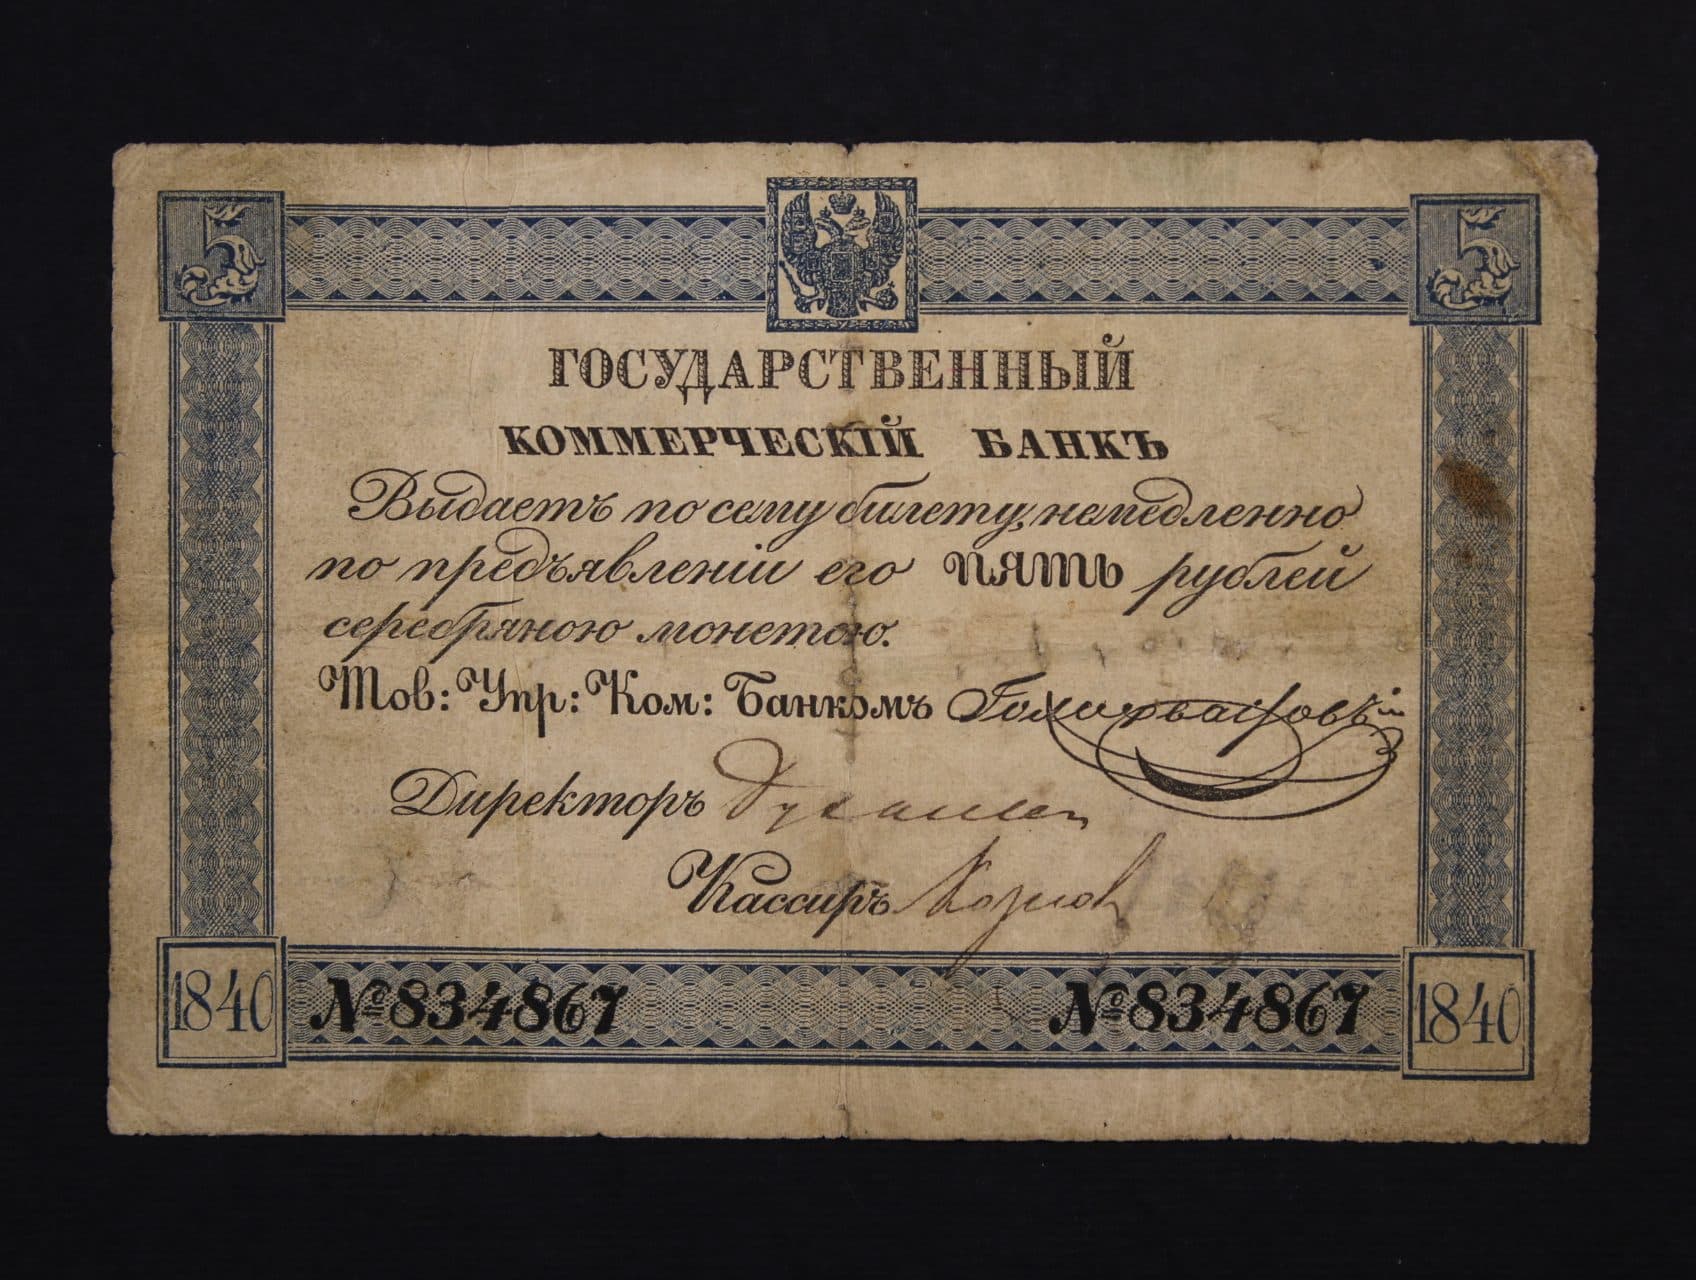 5 5
ГОСУДАРСТВЕННЫЙ
КОММЕРЧЕСКІЙ БАНКЪ
Выдаетъ по сему билету, немедленно
по предъявленіи его ПЯТЬ рублей
серебряною монетою.
Тов: Упр: Ком: Банкомъ
Директоръ
Кассиръ
1840 №834867 №834867 1840